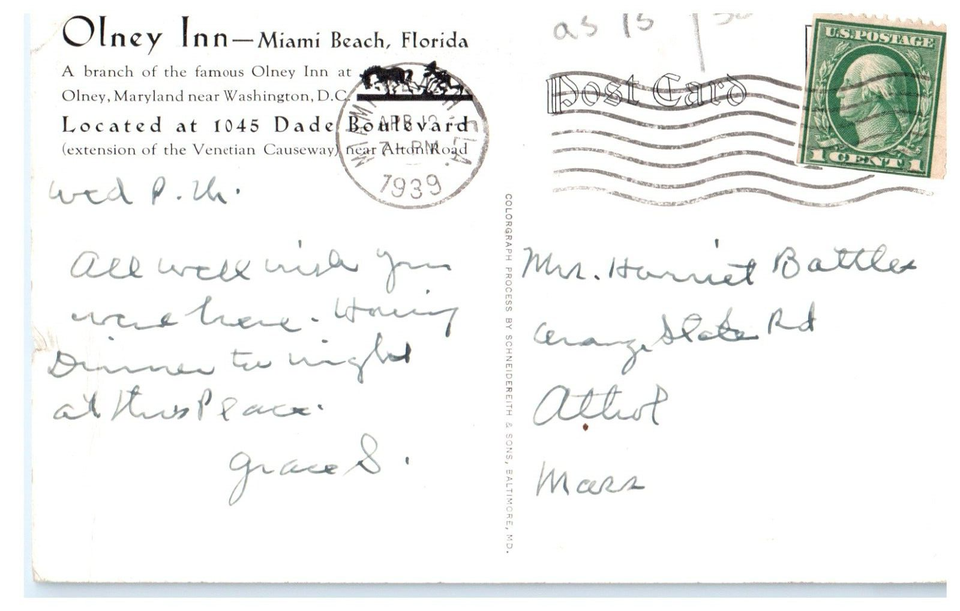 Olney Inn—Miami Beach, Florida
A branch of the famous Olney Inn at
Olney, Maryland near Washington, D.C.
Located at 1045 Dade Boulevard
(extension of the Venetian Causeway) near Alton Road
MIAMI BEACH FLA.
APR 12
7 PM
1939
Wed P. M.
All well wish you
were here. Having
Dinner to night
at this Place.
Grace S.
COLORGRAPH PROCESS BY SCHNEIDEREITH & SONS, BALTIMORE, MD.
as is
Post Card
U.S. POSTAGE
1 CENT 1
Mrs. Harriet Battles
Orange State Rd
Athol
Mass